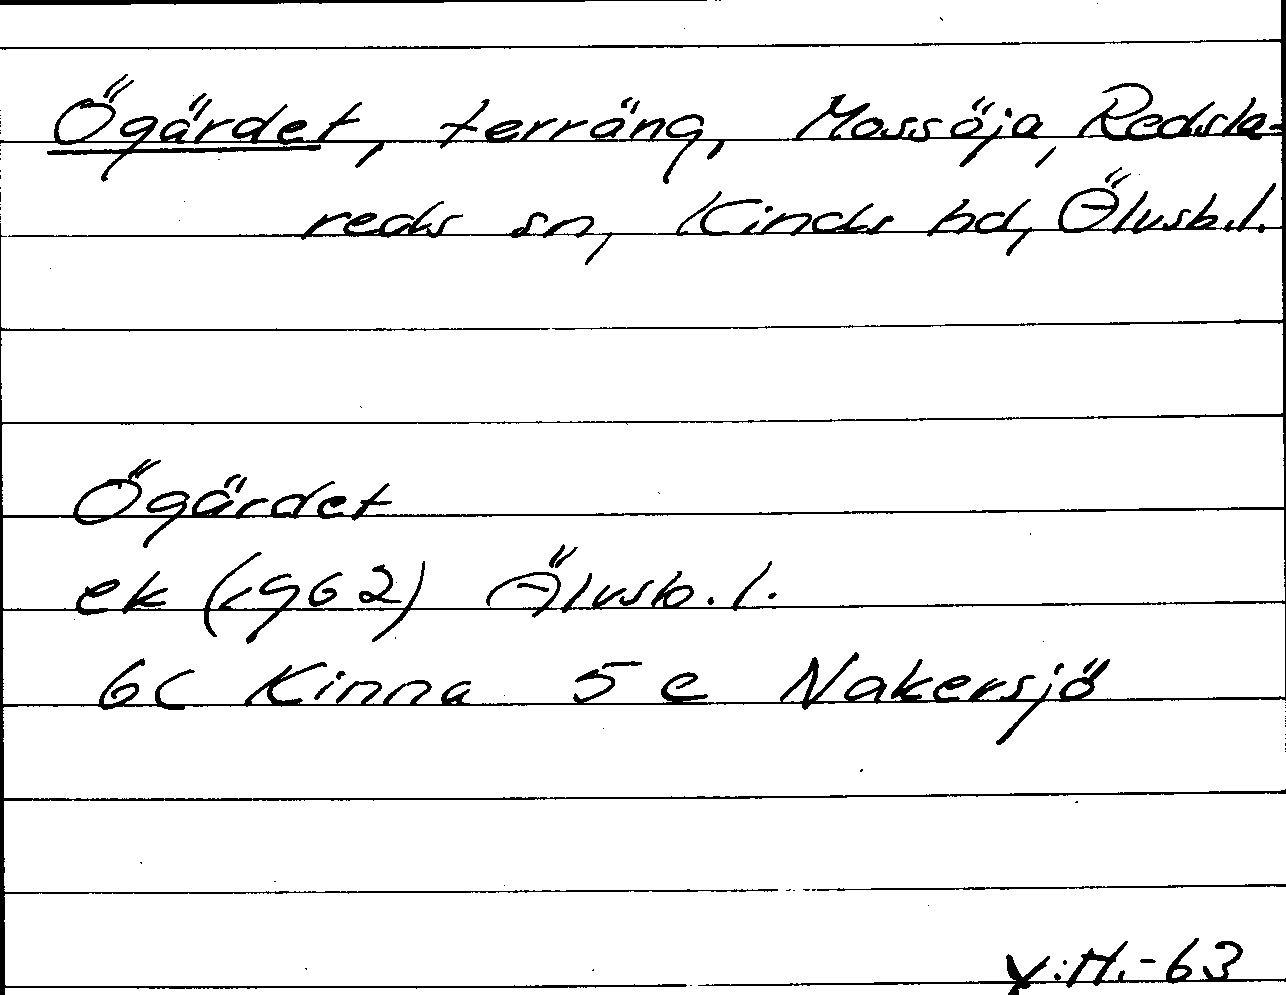 Ögärdet, terräng, Mossöja, Redsla-
reds sn, Kinds hd, Älvsb.l.
Ögärdet
ek (1962) Älvsb.l.
6C Kinna 5e Nakersjö
Y:H.-63